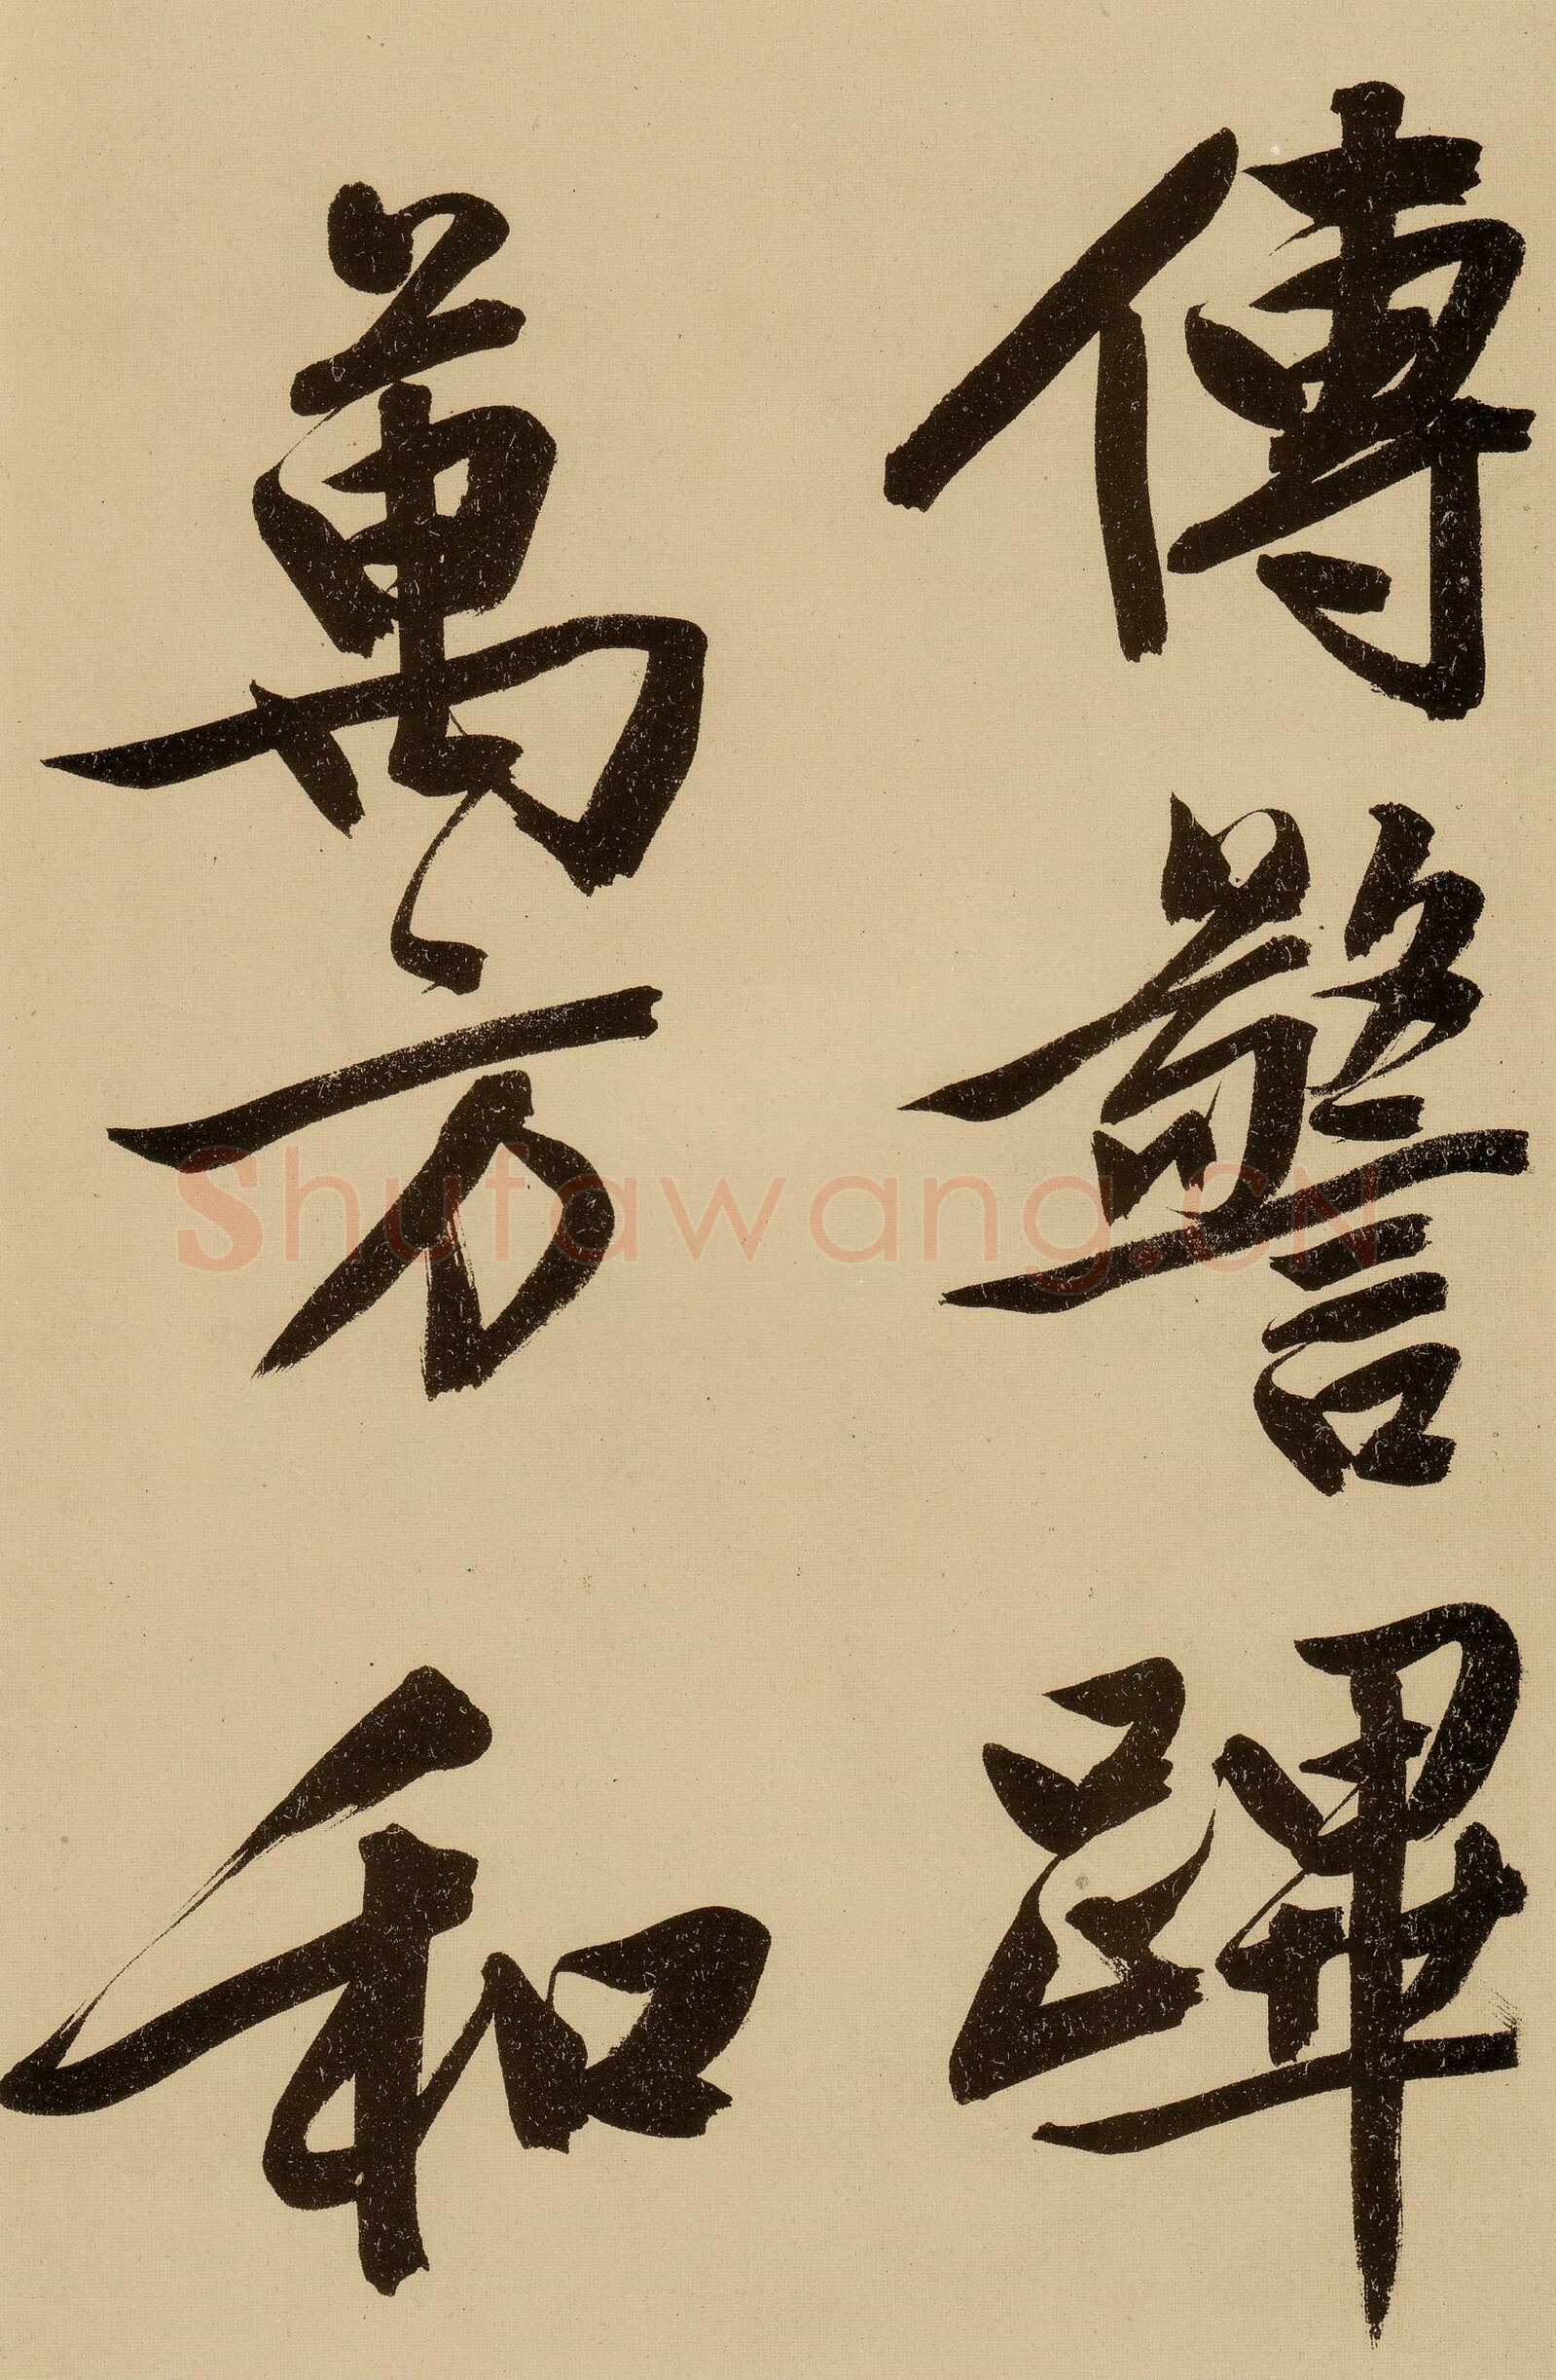 傳警蹕
萬方和
Shufawang.CN